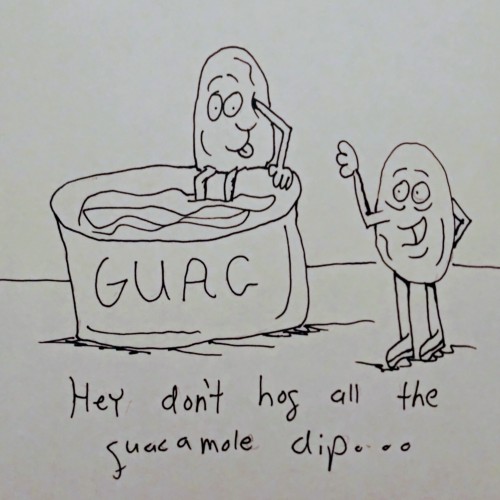 GUAG
Hey don't hog all the
guacamole dip....